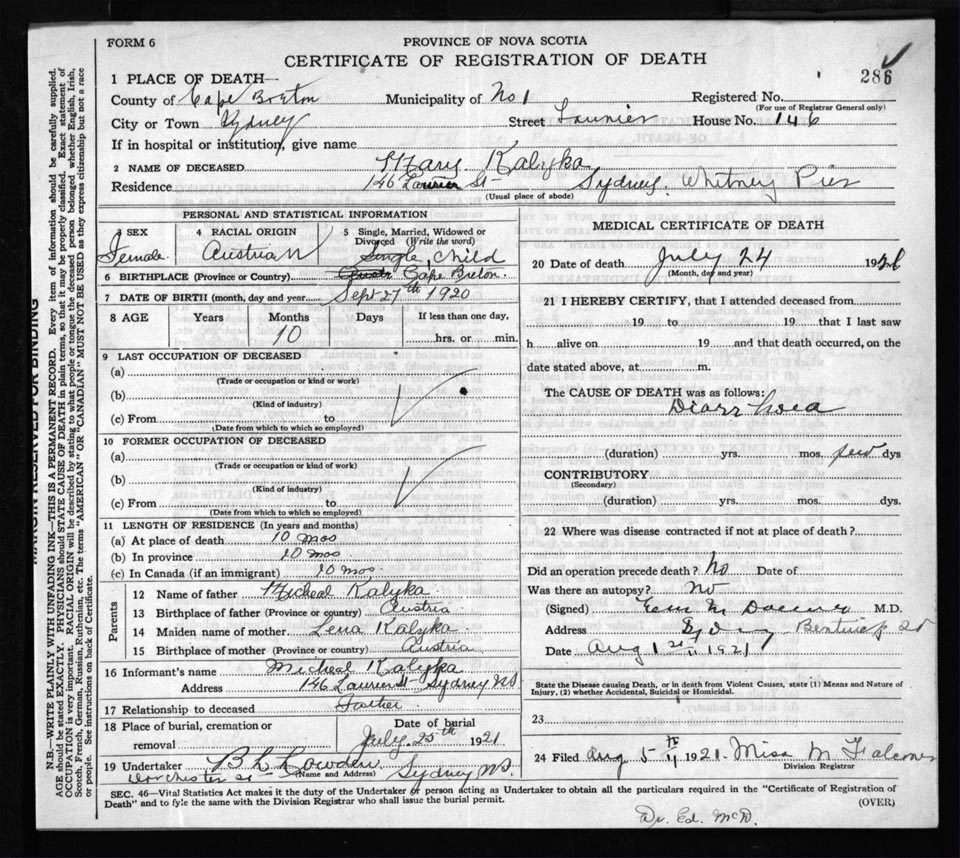 FORM 6
PROVINCE OF NOVA SCOTIA
CERTIFICATE OF REGISTRATION OF DEATH
286
1 PLACE OF DEATH—
County of Cape Breton Municipality of No 1 Registered No.
(For use of Registrar General only)
City or Town Sydney Street Laurier House No. 146
If in hospital or institution, give name
2 NAME OF DECEASED Mary Kalyka
Residence 146 Laurier St- Sydney, Whitney Pier
(Usual place of abode)
PERSONAL AND STATISTICAL INFORMATION
3 SEX Female
4 RACIAL ORIGIN Austrian
5 Single, Married, Widowed or Divorced (Write the word) Single, Child
6 BIRTHPLACE (Province or Country) Cape Breton.
7 DATE OF BIRTH (month, day and year Sept 27th 1920
8 AGE Years Months 10 Days If less than one day, hrs. or min.
9 LAST OCCUPATION OF DECEASED
(a)
(Trade or occupation or kind or work)
(b)
(Kind of industry)
(c) From to
(Date from which to which so employed)
10 FORMER OCCUPATION OF DECEASED
(a)
(Trade or occupation or kind of work)
(b)
(Kind of industry)
(c) From to
(Date from which to which so employed)
11 LENGTH OF RESIDENCE (In years and months)
(a) At place of death 10 mos
(b) In province 10 mos
(c) In Canada (if an immigrant) 10 mos.
Parents
12 Name of father Micheal Kalyka
13 Birthplace of father (Province or country) Austria
14 Maiden name of mother Lena Kalyka
15 Birthplace of mother (Province or country) Austria
16 Informant's name Micheal Kalyka
Address 146 Laurier St- Sydney NS
17 Relationship to deceased Father
18 Place of burial, cremation or removal
Date of burial July 25th 1921
19 Undertaker
(Name and Address)
Dorchester St- Sydney NS.
MEDICAL CERTIFICATE OF DEATH
20 Date of death July 24 1921
(Month, day and year)
21 I HEREBY CERTIFY, that I attended deceased from
19 to 19 that I last saw
h alive on 19 and that death occurred, on the
date stated above, at m.
The CAUSE OF DEATH was as follows:
Diarrhoea
(duration) yrs. mos. few dys
CONTRIBUTORY
(Secondary)
(duration) yrs. mos. dys.
22 Where was disease contracted if not at place of death?
Did an operation precede death? No Date of
Was there an autopsy? No
(Signed) M.D.
Address Sydney
Date Aug 1 1921
State the Disease causing Death, or in death from Violent Causes, state (1) Means and Nature of Injury, (2) whether Accidental, Suicidal or Homicidal.
23
24 Filed Aug 5th 1921. Miss M Falconer
Division Registrar
SEC. 46—Vital Statistics Act makes it the duty of the Undertaker or person acting as Undertaker to obtain all the particulars required in the "Certificate of Registration of
Death" and to fyle the same with the Division Registrar who shall issue the burial permit.
(OVER)
Dr. Ed. McD.
MARGIN RESERVED FOR BINDING
N.B.—WRITE PLAINLY WITH UNFADING INK—THIS IS A PERMANENT RECORD. Every item of information should be carefully supplied.
AGE should be stated EXACTLY. PHYSICIANS should STATE CAUSE OF DEATH in plain terms, so that it may be properly classified. Exact statement of
OCCUPATION is very important. RACIAL ORIGIN will be described by stating to what people or tongue the deceased person belonged whether English, Irish,
Scotch, French, German, Russian, Ruthenian, etc. The terms "AMERICAN" OR "CANADIAN" MUST NOT BE USED as they express citizenship but not a race
or people. See instructions on back of Certificate.